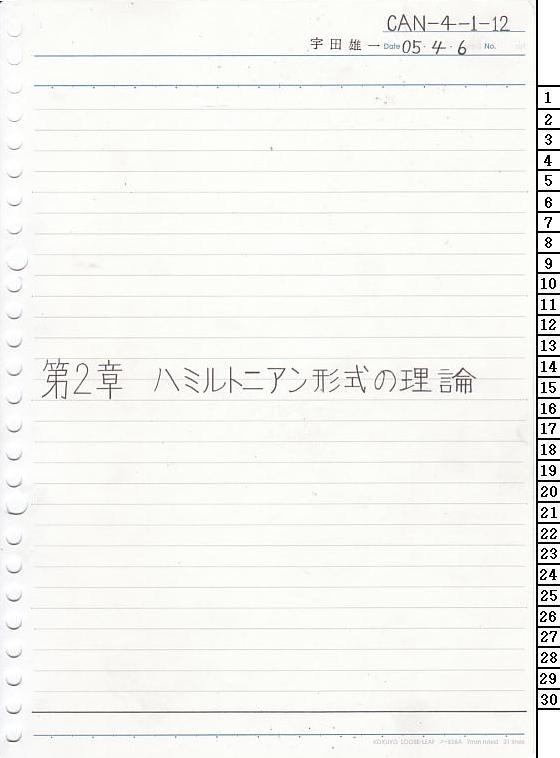 CAN-4-1-12
宇田雄一 Date 05・4・6 No.
第2章 ハミルトニアン形式の理論
1
2
3
4
5
6
7
8
9
10
11
12
13
14
15
16
17
18
19
20
21
22
23
24
25
26
27
28
29
30
KOKUYO LOOSE-LEAF ノ-836A 7mm ruled 31 lines